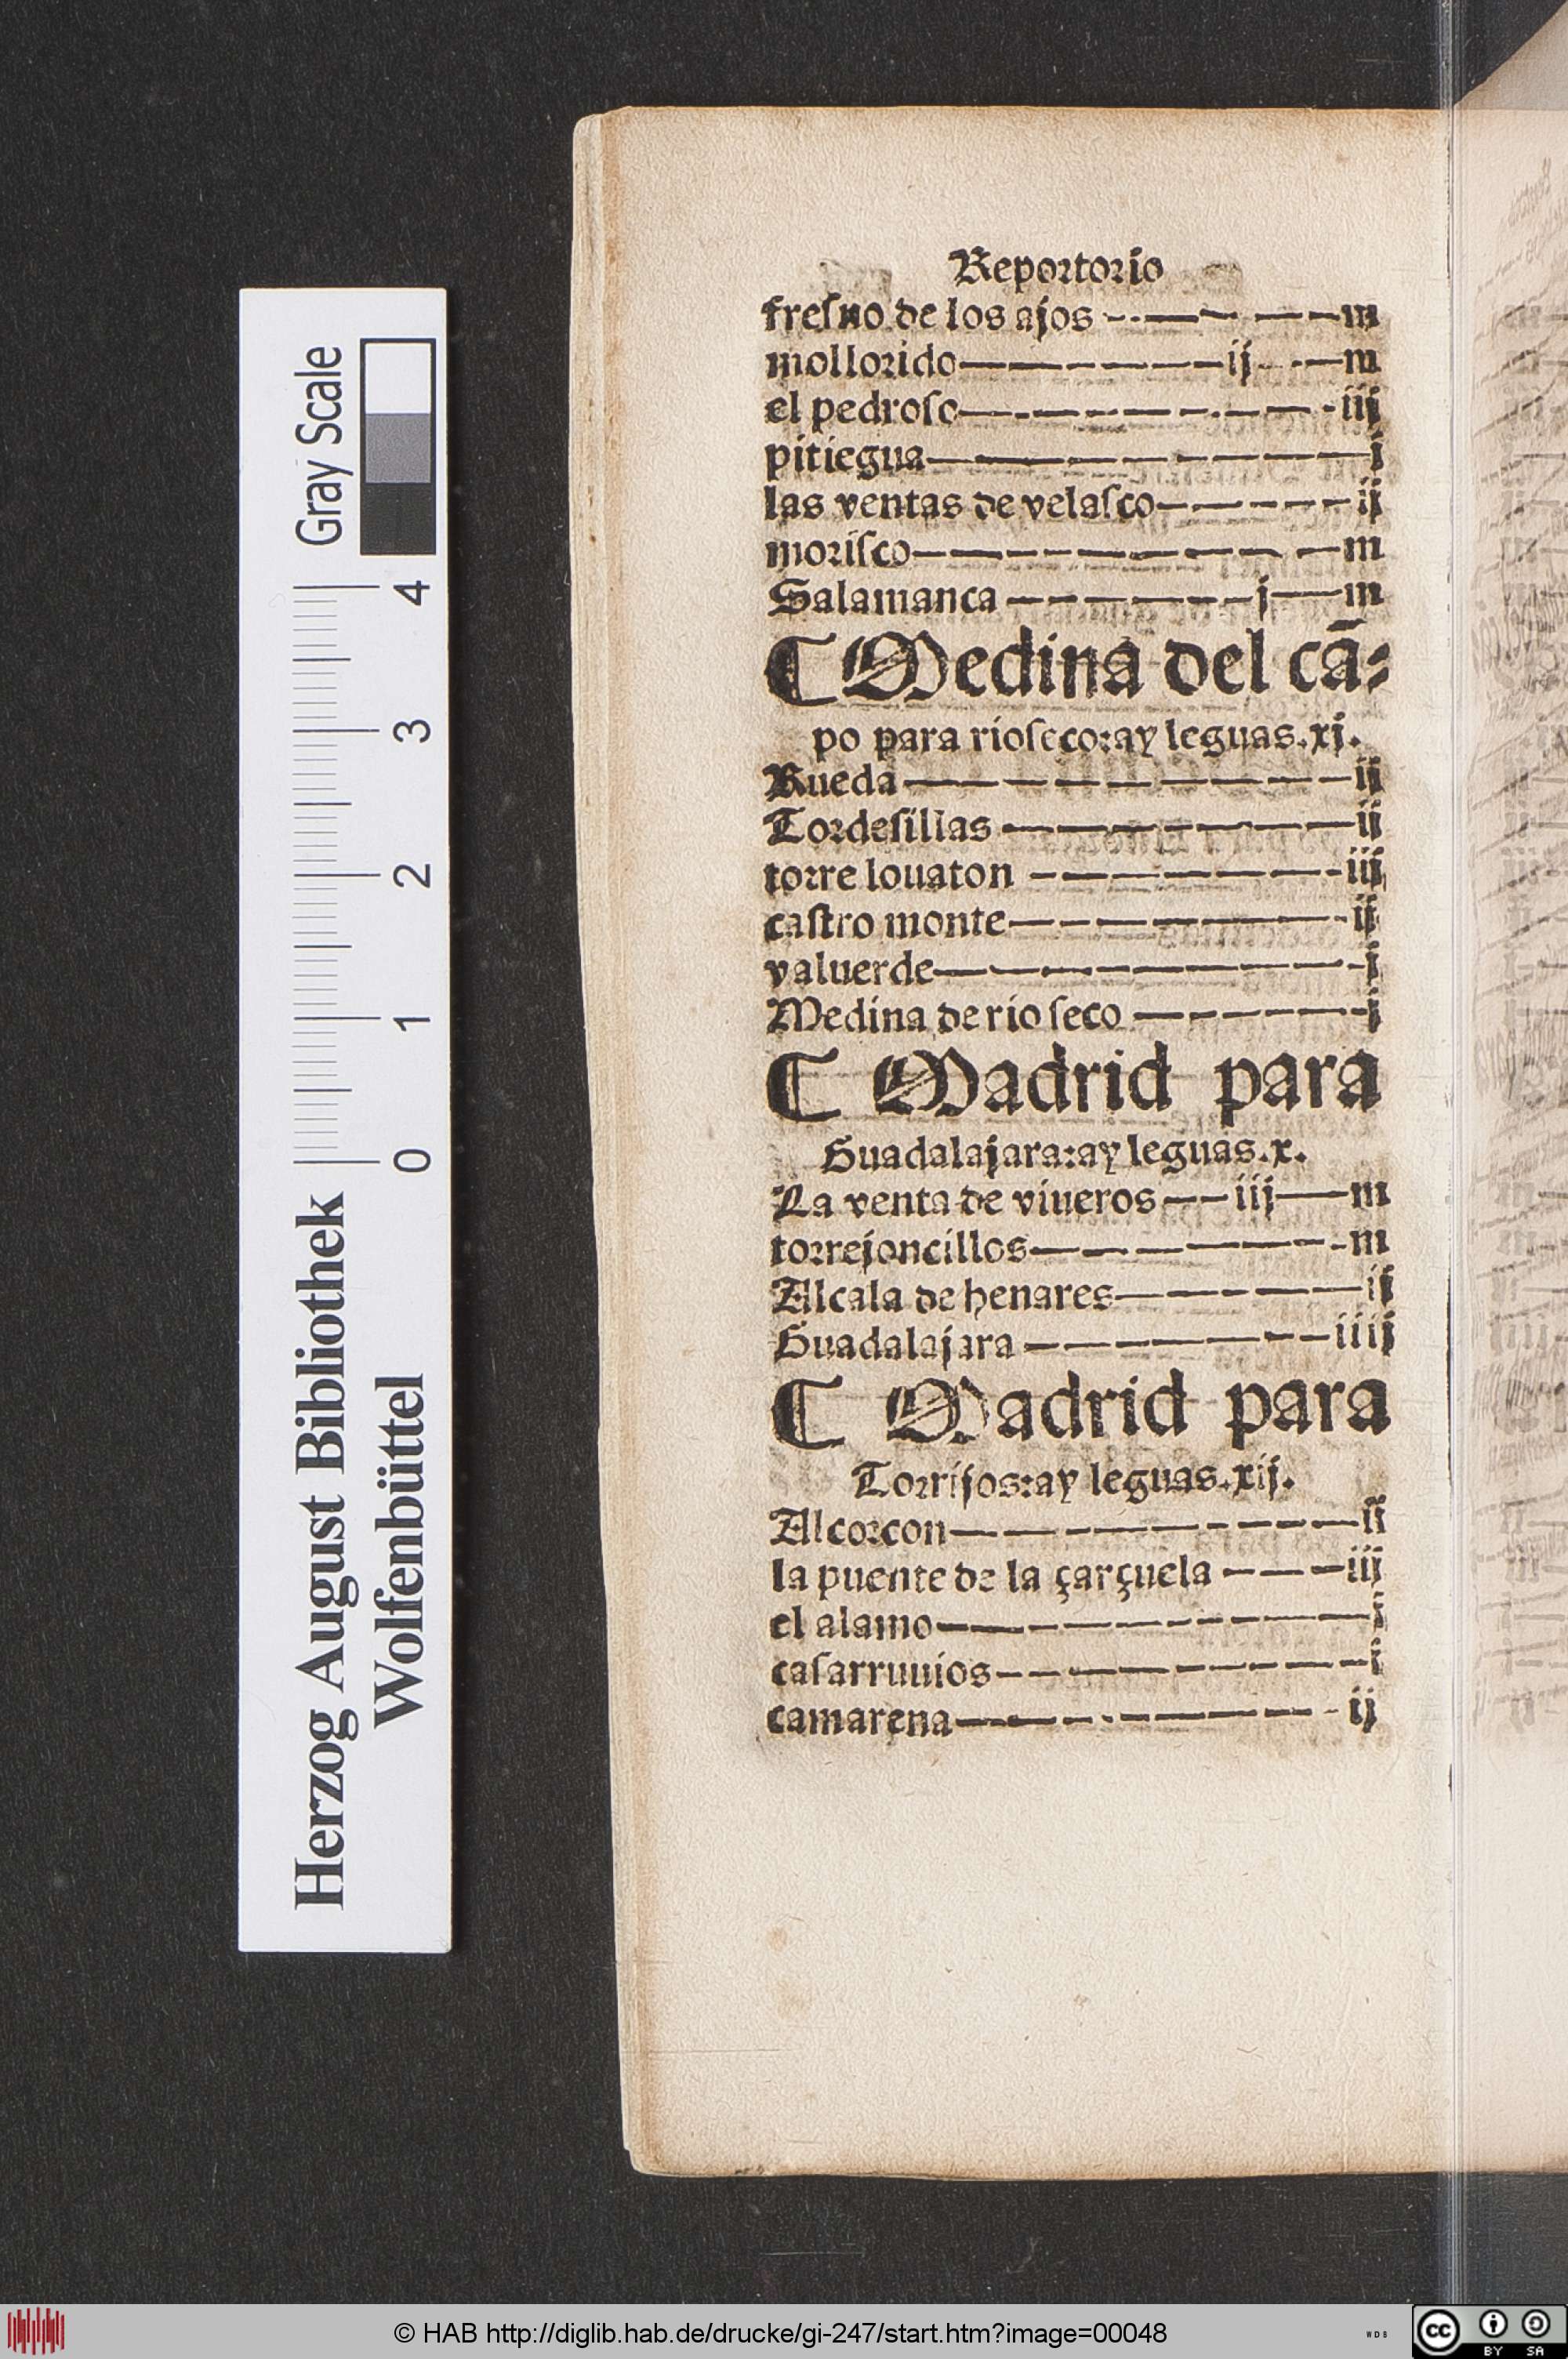 Reportorio
fresno de los ajos -·-— — —m
mollorido—————ij——m
el pedroso—————————iij
pitiegua————————j
las ventas de velasco——————ij
morisco—————————m
Salamanca ———————j——m
C Medina del cā-
po para rioseco:ay leguas.xj.
Rueda ————————ij
Tordesillas ———————ij
torre louaton ———————iij
castro monte————————ij
valuerde—————————j
Medina de rio seco ——————j
C Madrid para
Guadalajara:ay leguas.x.
La venta de viueros——iij——m
torrejoncillos———————m
Alcala de henares——————ij
Guadalajara ———————iiij
C Madrid para
Torrijos:ay leguas.xij.
Alcorcon—————————ij
la puente de la çarçuela ———iij
el alamo—————————j
casarruuios—————————j
camarena—————————ij
Gray Scale
0 1 2 3 4
Herzog August Bibliothek
Wolfenbüttel
© HAB http://diglib.hab.de/drucke/gi-247/start.htm?image=00048
WDB
cc BY SA